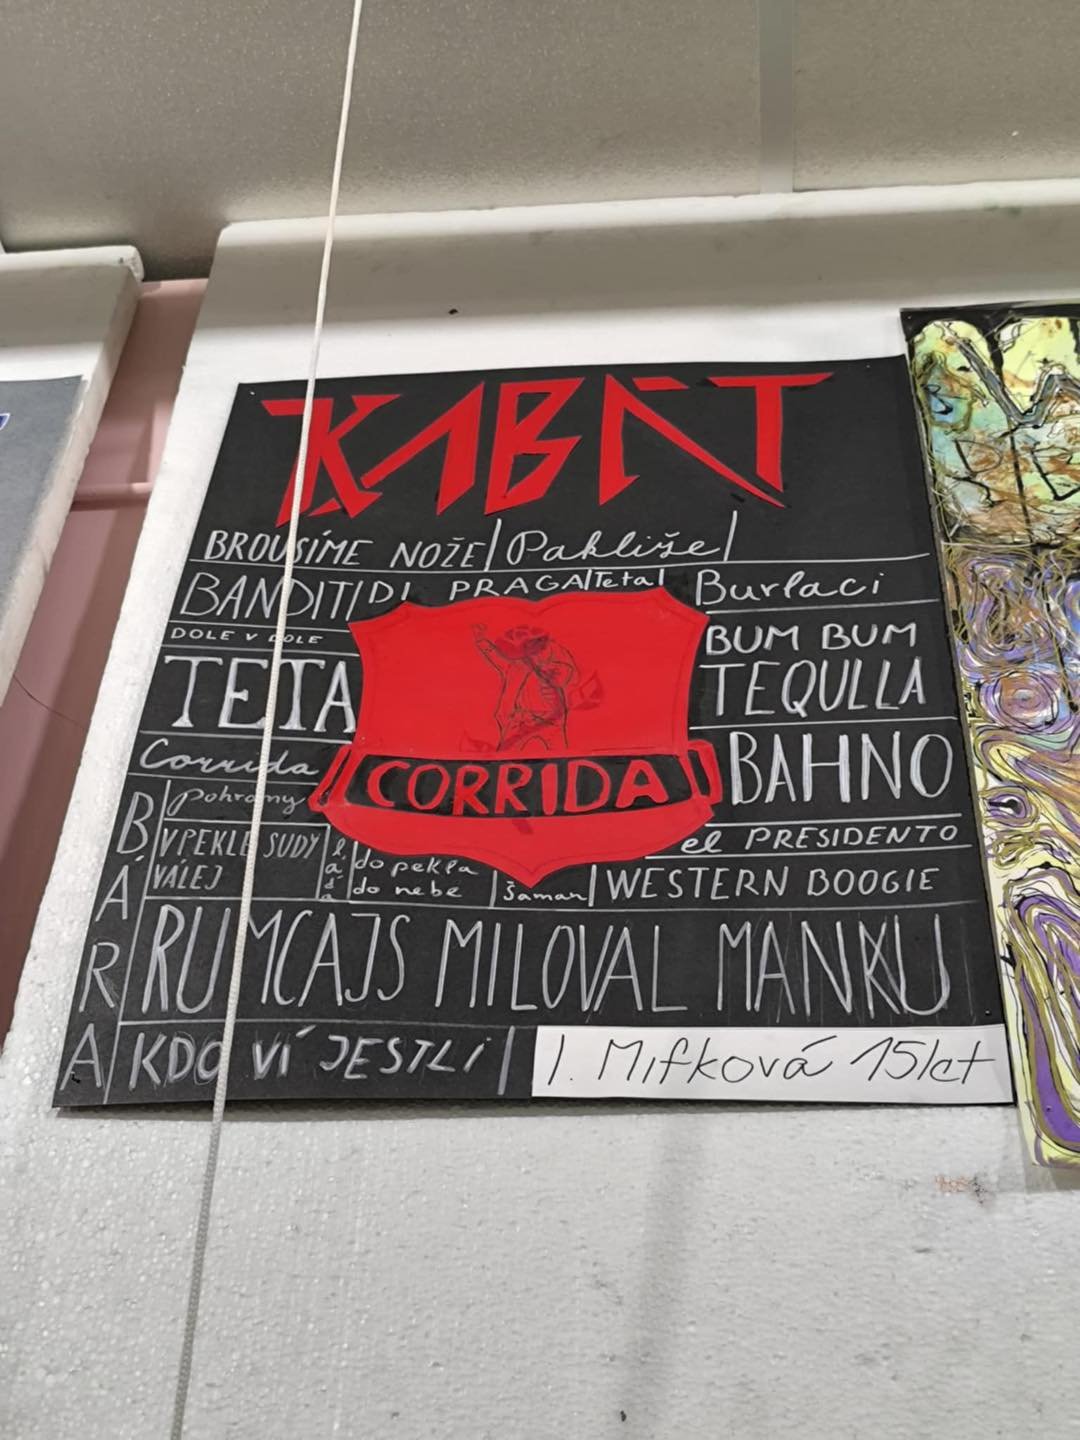 KABÁT
BROUSÍME NOŽE Pakliže
BANDITI DI PRAGA Teta Burlaci
DOLE V DOLE
BUM BUM
TEQULLA
TETA
Corrida
CORRIDA
BAHNO
pohromy
el PRESIDENTO
V PEKLE SUDY
VÁLEJ
do pekla
do nebe
šaman
WESTERN BOOGIE
BÁRA
RUMCAJS MILOVAL MANKU
KDO VÍ JESTLI
I. Mifková 15let